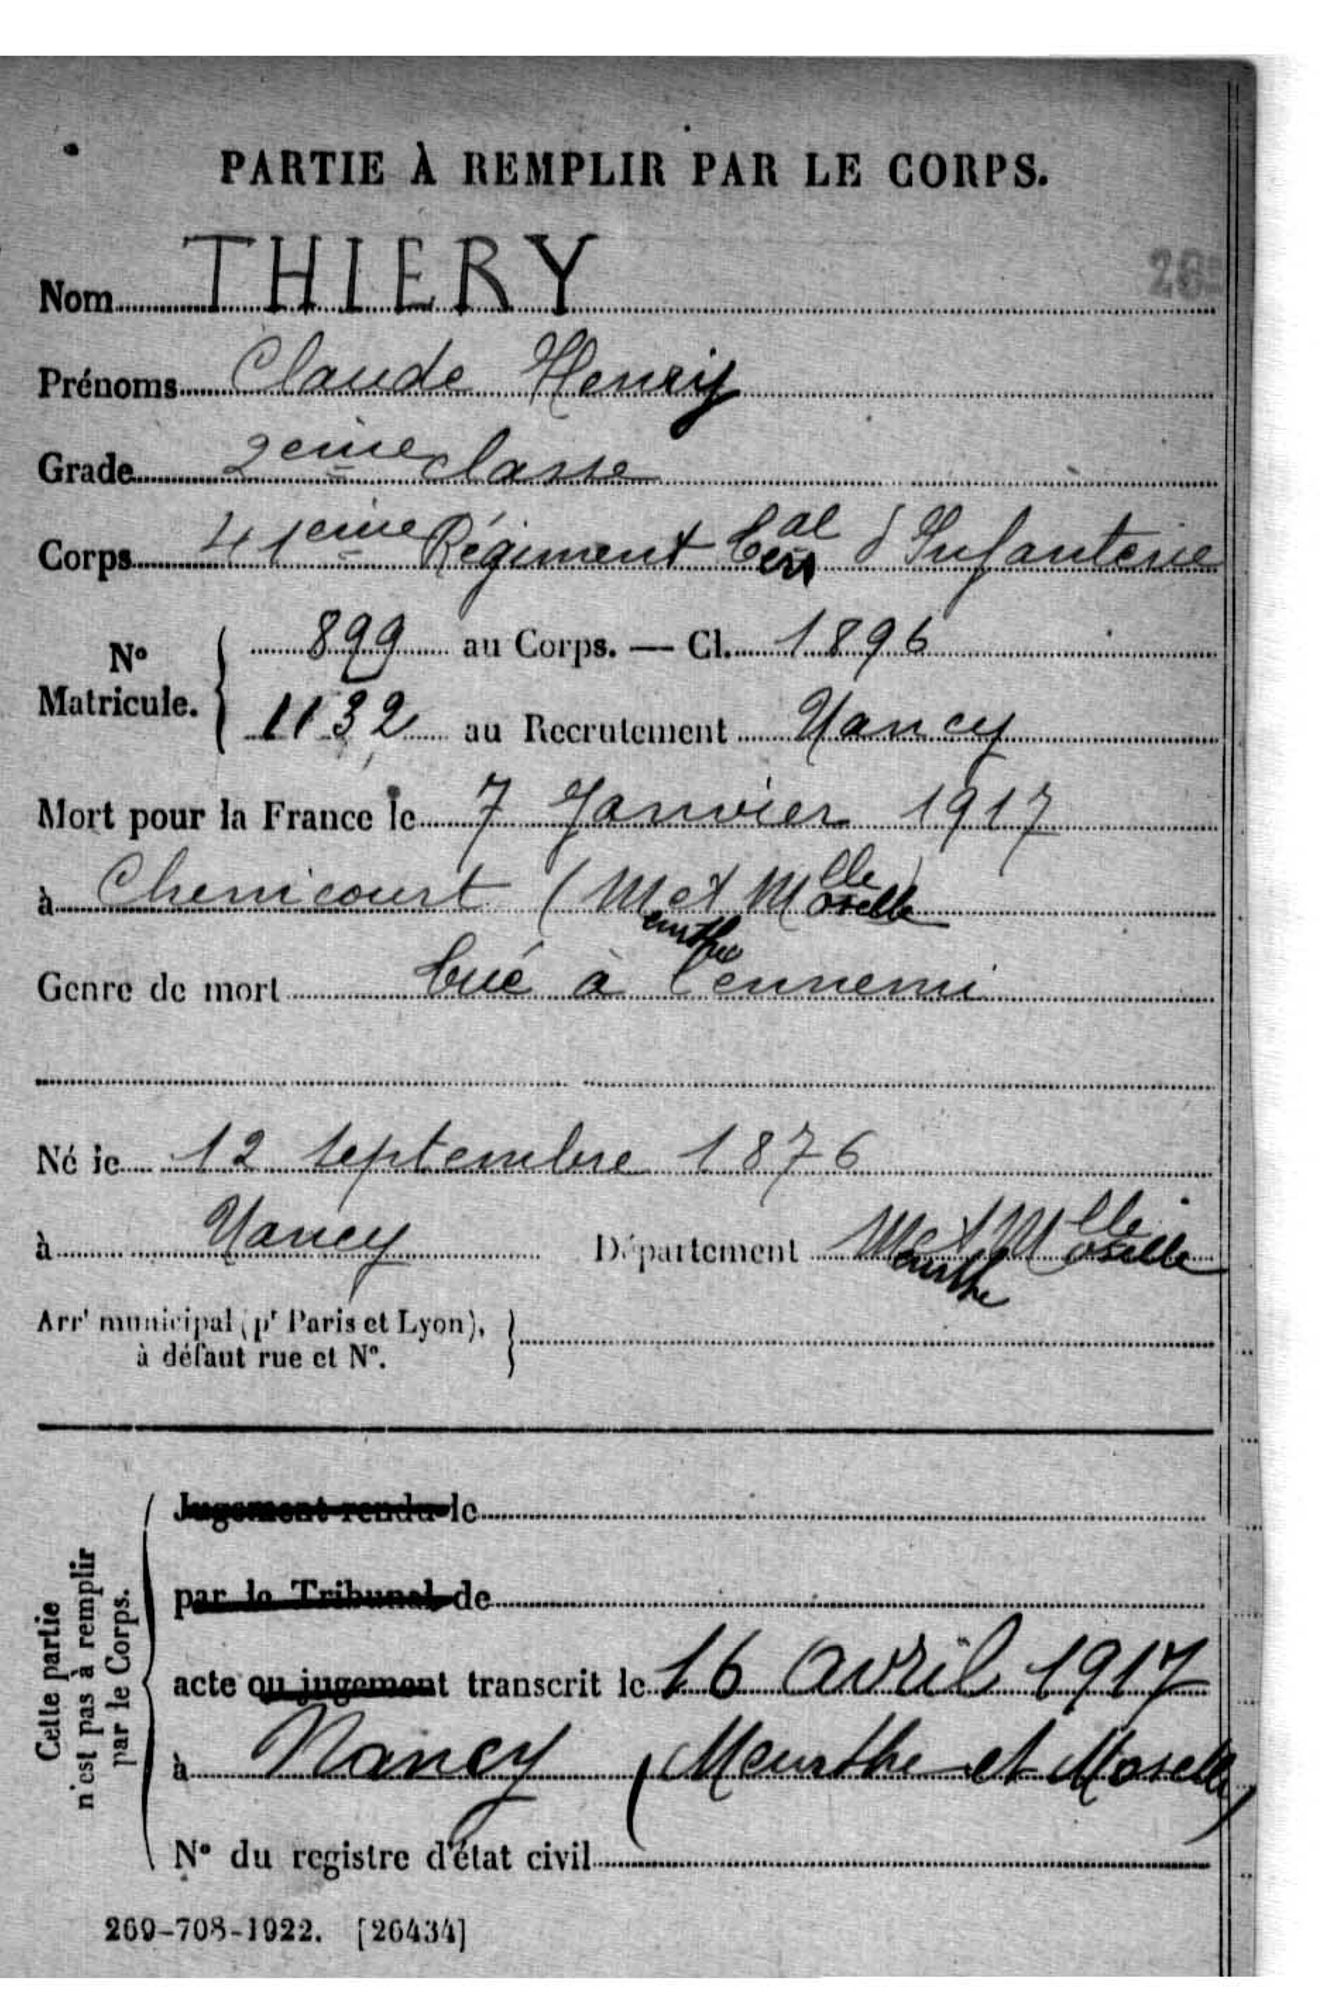 PARTIE À REMPLIR PAR LE CORPS.
Nom THIERY
Prénoms Claude Henry
Grade 2eme classe
Corps 41eme Régiment Teral d'Infanterie
N° Matricule. 899 au Corps. — Cl. 1896
1132 au Recrutement Nancy
Mort pour la France le 7 Janvier 1917
à Chenicourt (Meurthe et Moselle)
Genre de mort tué à l'ennemi
Né le 12 septembre 1876
à Nancy Département Meurthe et Moselle
Arrt municipal (pr Paris et Lyon),
à défaut rue et N°.
Cette partie
n'est pas à remplir
par le Corps.
Jugement rendu le
par le Tribunal de
acte ou jugement transcrit le 16 avril 1917
à Nancy (Meurthe et Moselle)
N° du registre d'état civil
269-708-1922. [26434]